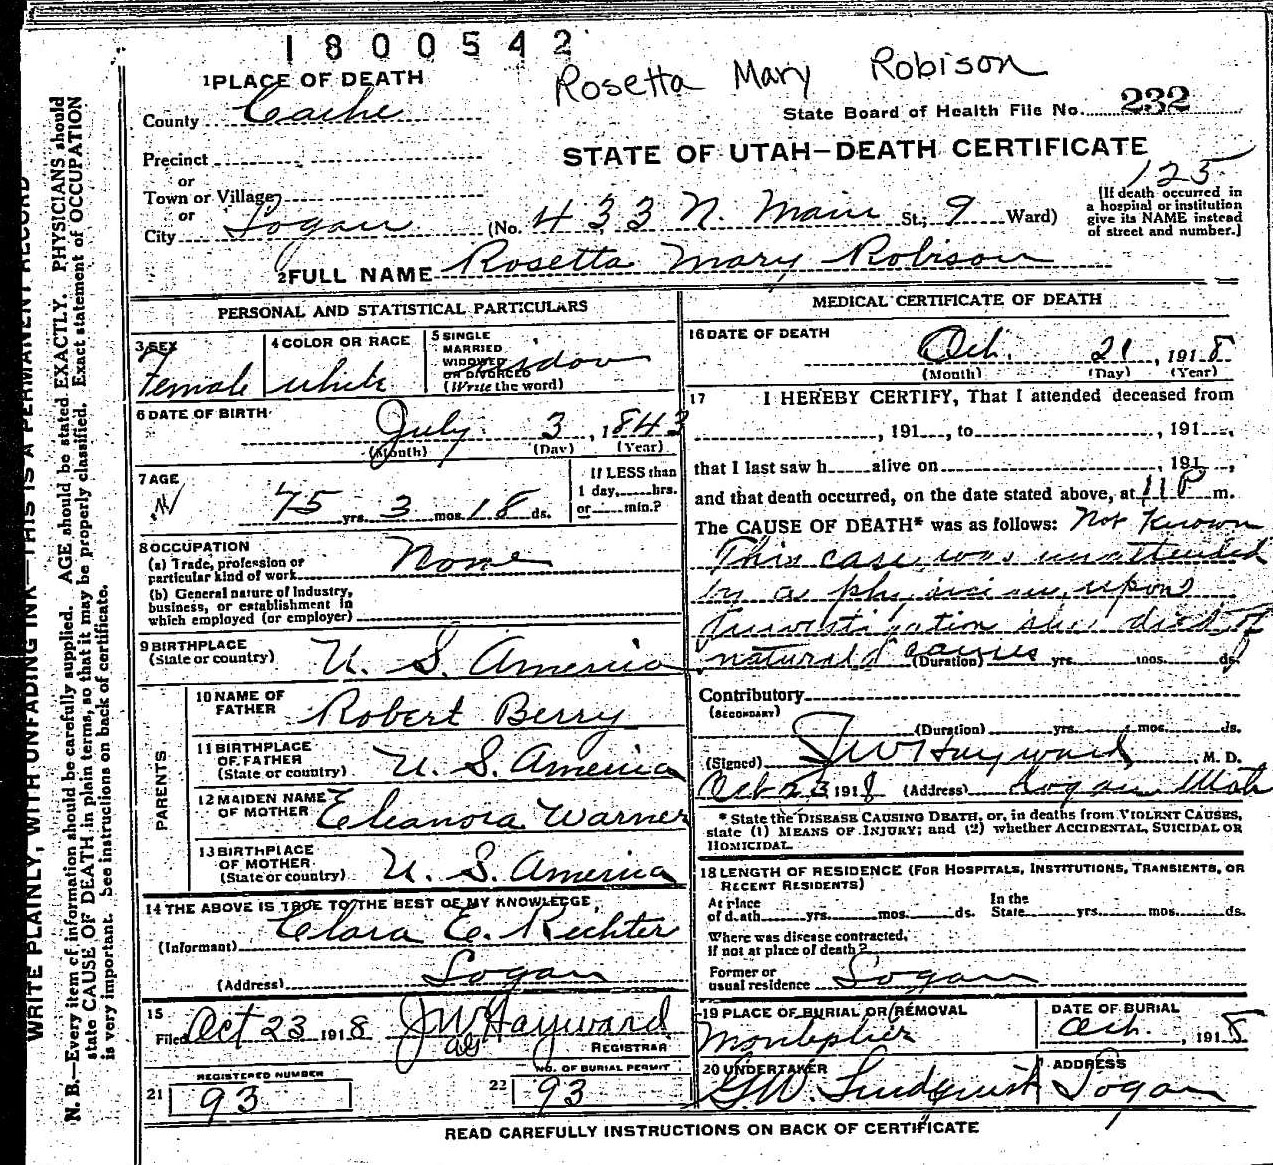 1800542
Rosetta Mary Robison
1 PLACE OF DEATH
State Board of Health File No. 232
County Cache
STATE OF UTAH—DEATH CERTIFICATE
Precinct
or
Town or Village
or
City Logan (No. 433 N. Main St; 9 Ward)
125
(If death occurred in
a hospital or institution
give its NAME instead
of street and number.)
2 FULL NAME Rosetta Mary Robison
PERSONAL AND STATISTICAL PARTICULARS
3 SEX
Female
4 COLOR OR RACE
white
5 SINGLE
MARRIED
WIDOWED
OR DIVORCED
(Write the word)
widow
6 DATE OF BIRTH
July 3, 1843
(Month) (Day) (Year)
7 AGE
75 yrs. 3 mos. 18 ds.
If LESS than
1 day,......hrs.
or......min.?
8 OCCUPATION
(a) Trade, profession or
particular kind of work None
(b) General nature of Industry,
business, or establishment in
which employed (or employer)
9 BIRTHPLACE
(State or country) U. S. America
PARENTS
10 NAME OF
FATHER Robert Berry
11 BIRTHPLACE
OF FATHER
(State or country) U. S. America
12 MAIDEN NAME
OF MOTHER Eleanora Warner
13 BIRTHPLACE
OF MOTHER
(State or country) U. S. America
14 THE ABOVE IS TRUE TO THE BEST OF MY KNOWLEDGE,
(Informant) Clara E. Rechter
(Address) Logan
15
Filed Oct 23 1918 J W Hayward
REGISTRAR
REGISTERED NUMBER
21 93
NO. OF BURIAL PERMIT
22 93
MEDICAL CERTIFICATE OF DEATH
16 DATE OF DEATH
Oct. 21, 1918
(Month) (Day) (Year)
17 I HEREBY CERTIFY, That I attended deceased from
, 191..., to , 191...,
that I last saw h.....alive on , 191...,
and that death occurred, on the date stated above, at 11 P m.
The CAUSE OF DEATH* was as follows: Not Known
This case was unattended
by a physician, upon
Investigation she died of
natural causes (Duration) yrs. mos. ds.
Contributory
(SECONDARY)
(Duration) yrs. mos. ds.
(Signed) J W Hayward, M. D.
Oct 23 1918 (Address) Logan Utah
* State the DISEASE CAUSING DEATH, or, in deaths from VIOLENT CAUSES,
state (1) MEANS OF INJURY; and (2) whether ACCIDENTAL, SUICIDAL OR
HOMICIDAL.
18 LENGTH OF RESIDENCE (FOR HOSPITALS, INSTITUTIONS, TRANSIENTS, OR
RECENT RESIDENTS)
At place
of death yrs. mos. ds.
In the
State yrs. mos. ds.
Where was disease contracted,
if not at place of death?
Former or
usual residence Logan
19 PLACE OF BURIAL OR REMOVAL
Monteplier
DATE OF BURIAL
Oct. , 1918
20 UNDERTAKER
G.W. Lindquist
ADDRESS
Logan
READ CAREFULLY INSTRUCTIONS ON BACK OF CERTIFICATE
WRITE PLAINLY, WITH UNFADING INK—THIS IS A PERMANENT RECORD
N. B.—Every item of information should be carefully supplied. AGE should be stated EXACTLY. PHYSICIANS should
state CAUSE OF DEATH in plain terms, so that it may be properly classified. Exact statement of OCCUPATION
is very important. See instructions on back of certificate.